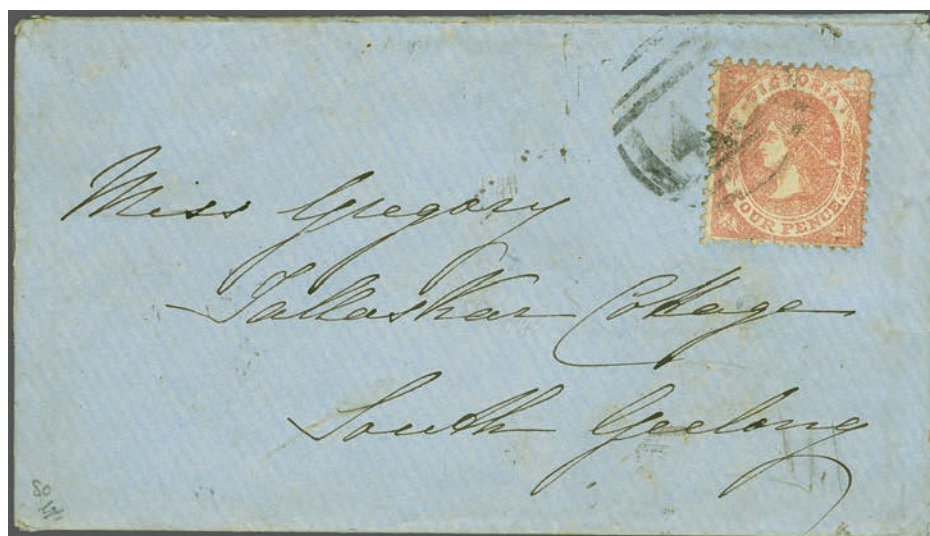 VICTORIA
FOUR PENCE
Miss Gregory
Tallaskar Cottage
South Geelong
80